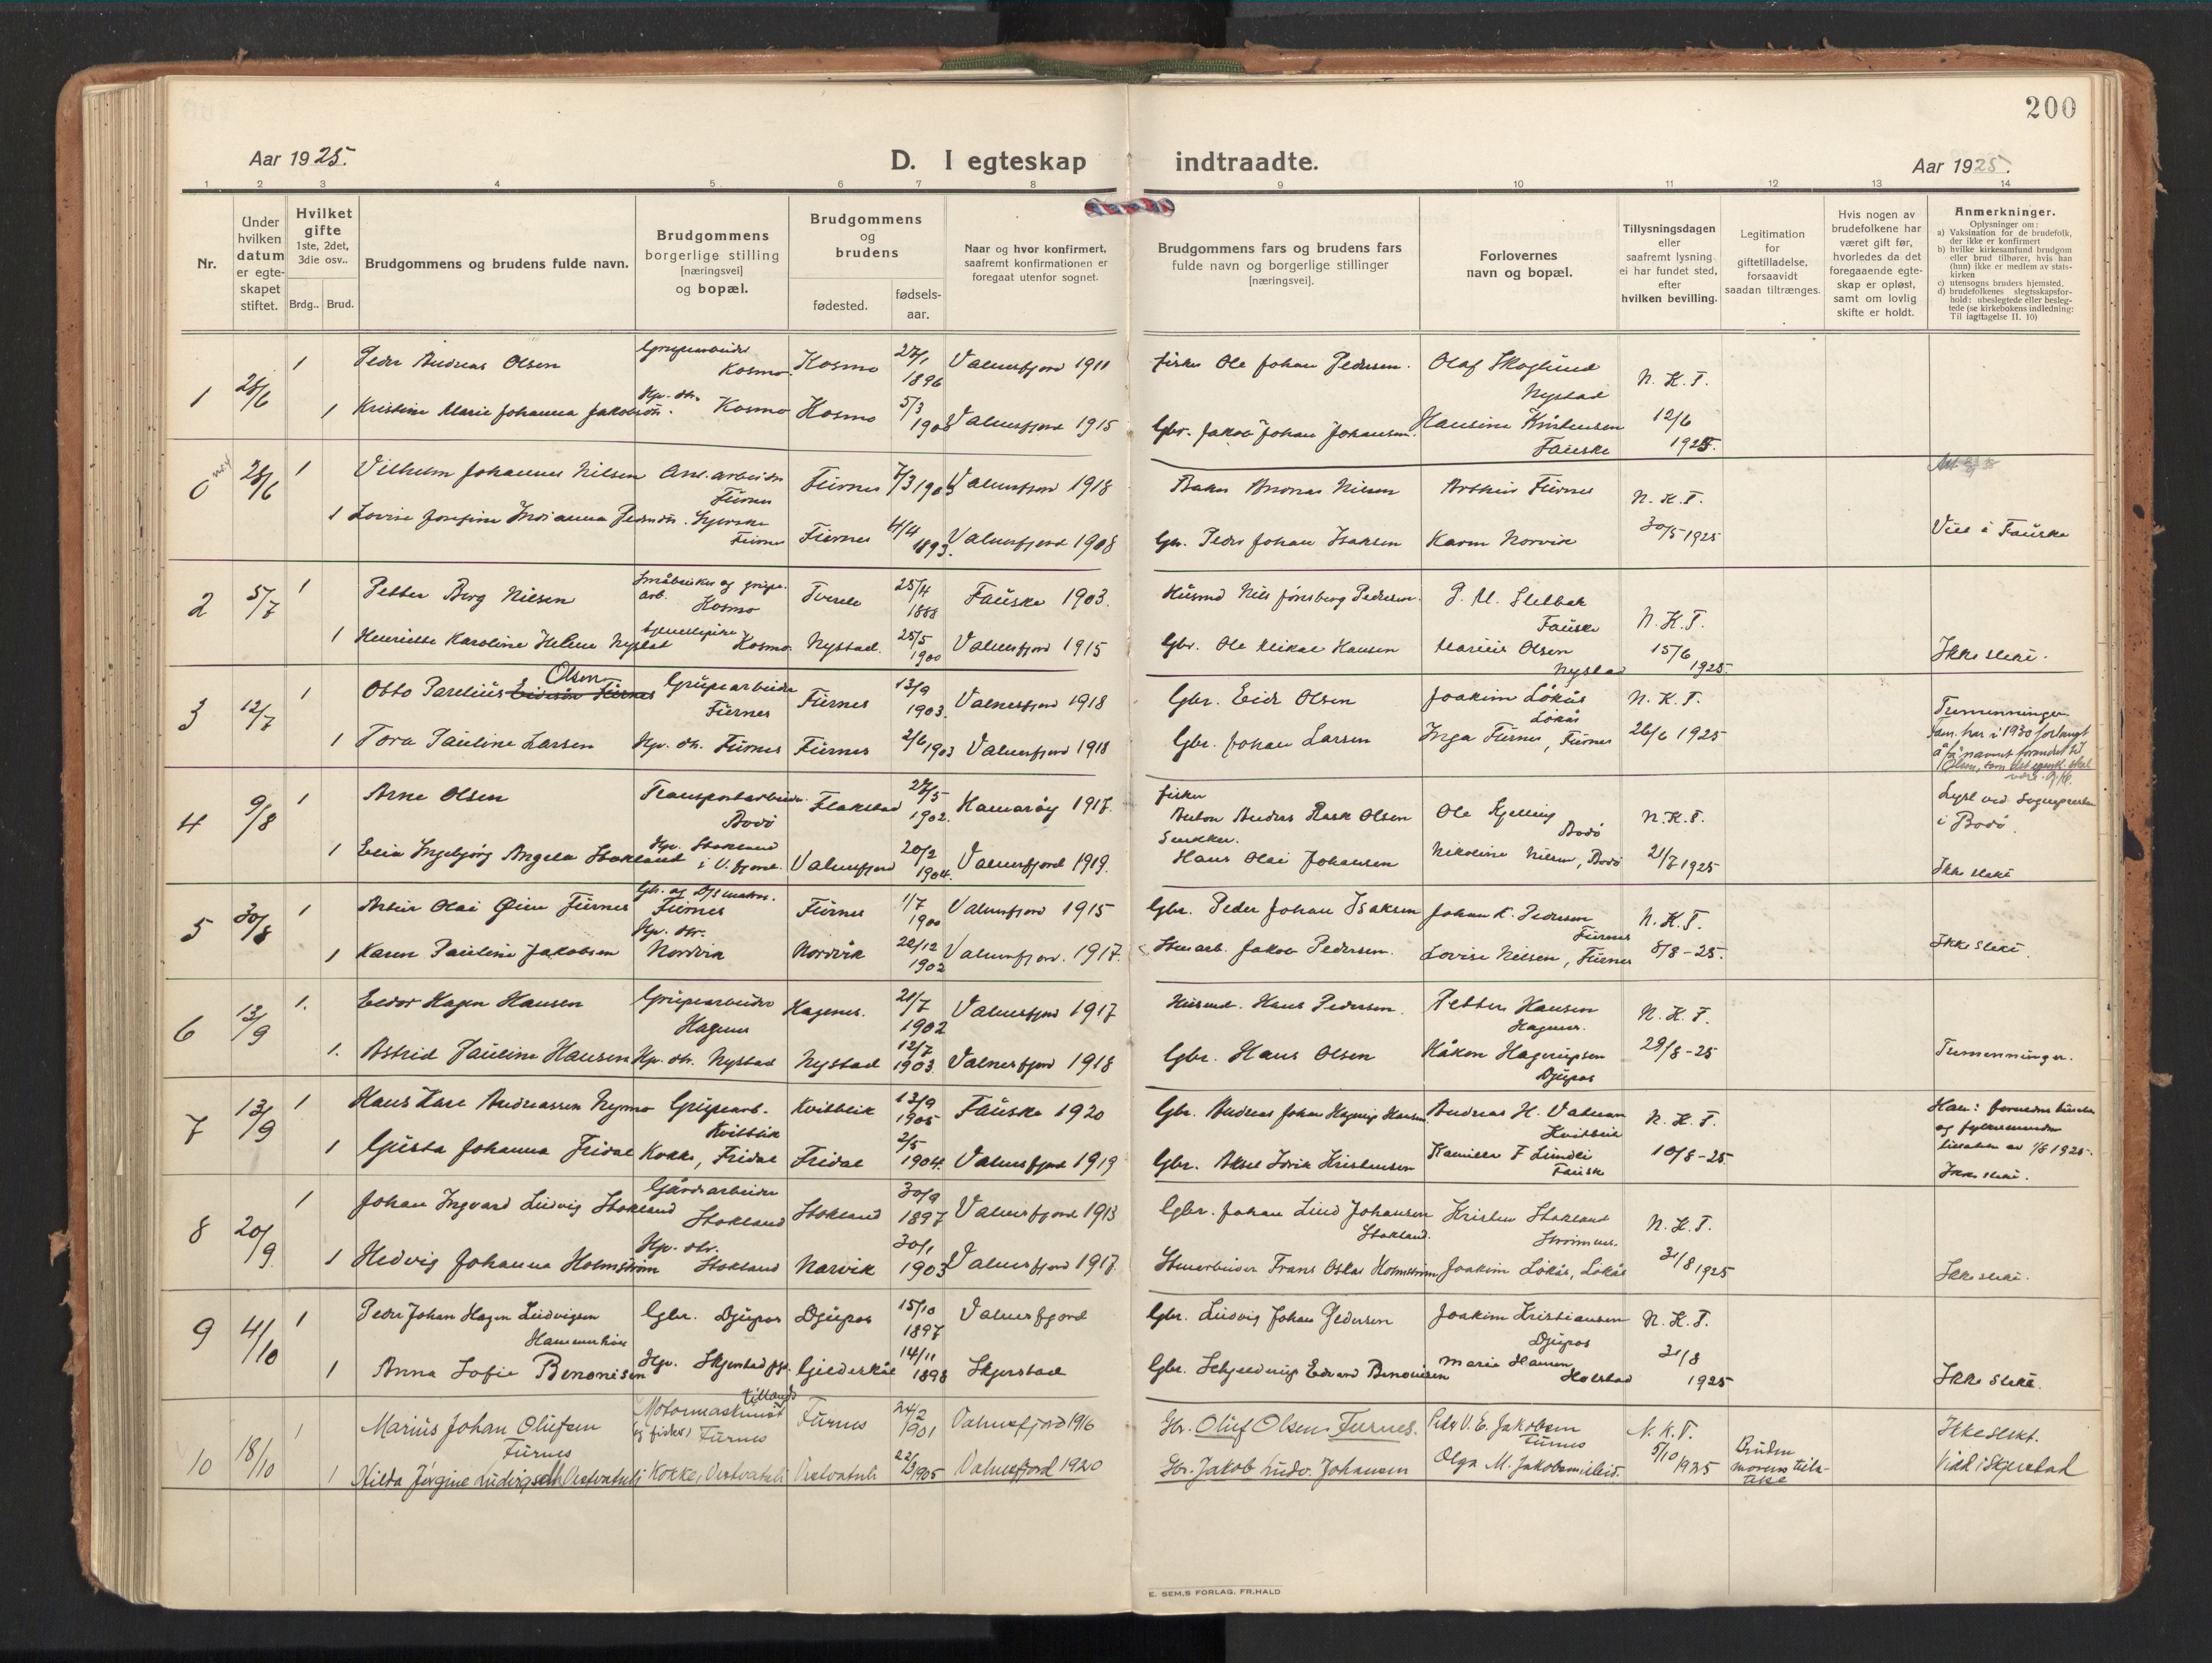 200
Aar 1925.
D. I egteskap indtraadte.
Aar 1925.
1 2 3 4 5 6 7 8 9 10 11 12 13 14
Nr.
Under hvilken datum er egteskapet stiftet.
Hvilket gifte 1ste, 2det, 3die osv..
Brdg.. Brud.
Brudgommens og brudens fulde navn.
Brudgommens borgerlige stilling [næringsvei] og bopæl.
Brudgommens og brudens
fødested.
fødsels-aar.
Naar og hvor konfirmert, saafremt konfirmationen er foregaat utenfor sognet.
Brudgommens fars og brudens fars fulde navn og borgerlige stillinger [næringsvei].
Forlovernes navn og bopæl.
Tillysningsdagen eller saafremt lysning ei har fundet sted, efter hvilken bevilling.
Legitimation for giftetilladelse, forsaavidt saadan tiltrænges.
Hvis nogen av brudefolkene har været gift før, hvorledes da det foregaaende egteskap er opløst, samt om lovlig skifte er holdt.
Anmerkninger.
Oplysninger om:
a) Vaksination for de brudefolk, der ikke er konfirmert
b) hvilke kirkesamfund brudgom eller brud tilhører, hvis han (hun) ikke er medlem av statskirken
c) utensogns bruders hjemsted.
d) brudefolkenes slegtsskapsforhold: ubeslegtede eller beslegtede (se kirkebokens indledning: Til iagttagelse II. 10)
1 28/6 1 Peder Andreas Olsen Grubearbeider Kosmo Kosmo 27/1 1896 Valnesfjord 1911 fisker Ole Johan Pedersen. Olaf Skoglund Nystad N. K. T.
1 Kristine Marie Johanna Jakobsen. Hp. dtr. Kosmo Kosmo 5/3 Valnesfjord 1915 Gbr. Jakob Johan Johansen. Hansine Kristensen Fauske 12/6 1925.
0 28/6 1 Vilhelm Johannes Nilsen Anl. arbeider Furnes Furnes 7/3 Valnesfjord 1918 Nilsen Arthur Furnes N. K. T.
1 Lovise Josefine Pedersen. Syerske Furnes Furnes 4/4 1893. Valnesfjord 1908 Gbr. Peder Johan Isaksen Karen Norvik 30/5 1925 Viet i Fauske
2 5/7 1 Petter Berg Nilsen Småbruker og grube. arb. Kosmo Tverele 25/4 1888 Fauske 1903. Husmd Nils Jonsberg Pedersen. P. M. Sletbak Fauske N. K. T.
1 Henriette Karoline Helene Nystad Kosmo. Nystad. 25/5 1900 Valnesfjord 1915 Gbr. Ole Mikal Hansen Marius Olsen Nystad 15/6 1925. Ikke slekt.
3 12/7 1 Otto Parelius Olsen Grubearbeider Furnes Furnes 13/9 1903. Valnesfjord 1918 Gbr. Eidr Olsen Joakim Løkås Løkås N. K. T.
1 Tora Pauline Larsen Hp. dtr. Furnes Furnes 2/6 1903 Valnesfjord 1918 Gbr. Johan Larsen Inga Furnes, Furnes 26/6 1925 Tremenninger.
Fam. har i 1930 forlangt å få navnet forandret til Olsen, som det egentl. skal være.
4 9/8 1 Arne Olsen Transportarbeider Bodø Flakstad 27/5 1902. Hamarøy 1917. fisker Anton Anders Rask Olsen Ole Kjelling Bodø N. K. T. Lyst ved Sognepresten i Bodø.
1 Elia Ingebjørg Angela Stokland Hp. Stokland i V. fjord. Valnesfjord 20/2 1904. Valnesfjord 1919. Snekker. Hans Olai Johansen Nikoline Nilsen, Bodø 21/7 1925 Ikke slekt
5 30/8 1 Artur Olai Øien Furnes Furnes Furnes 1/7 1900 Valnesfjord 1915 Gbr. Peder Johan Isaksen Johan K. Pedersen Furnes N. K. T.
1 Karen Pauline Jakobsen Hp. dtr. Nordvik Nordvik 22/12 1902 Valnesfjord. 1917. Stenarb. Jakob Pedersen. Lovise Nilsen, Furnes 8/8-25. Ikke slekt.
6 13/9 1. Eidor Hagen Hansen Grubearbeider Hagenes Hagenes. 21/7 1902 Valnesfjord 1917 Husmd. Hans Pedersen. Petter Hansen Hagenes. N. K. T.
1. Astrid Pauline Hansen Hp. dtr. Nystad Nystad 12/7 1903. Valnesfjord 1918 Gbr. Hans Olsen Håkon Hagerupsen Djupos 29/8-25 Tremenninger.
7 13/9 1 Hans Kare Andreassen Nymo Grubearb. Kvitblik Kvitblik 13/9 1905 Fauske 1920 Gbr. Andreas Johan Hagerup Hansen. Andreas H. Valnes Kvitblik N. K. T.
1 Gusta Johanna Fridal Kokke, Fridal Fridal 2/5 1904. Valnesfjord 1919 Gbr. Aksel Kristensen Kamilla F Lundli Fauske 10/8-25 Ikke slekt.
8 20/9 1 Johan Ingvard Ludvig Stokland Gårdsarbeider Stokland Stokland 30/9 1897 Valnesfjord 1913 Gbr. Johan Lind Johansen Stokland. Kristen Stokland Strømsnes. N. K. T.
1 Hedvig Johanna Holmstrøm Hp. dtr. Stokland Narvik 30/1 1903 Valnesfjord 1917 Stenarbeider Frans Oskar Holmstrøm Joakim Løkås, Løkås 31/8 1925 Ikke slekt.
9 4/10 1 Peder Johan Hagen Ludvigsen Gbr. Djupos Djupos 15/10 1897 Valnesfjord Gbr. Ludvig Johan Pedersen Joakim Kristiansen Djupos N. K. T.
1 Anna Sofie Benonisen Hp. Skjerstad pgd. Gildeskål 14/11 1898 Skjerstad Gbr. Schjelderup Edvard Benonisen Marie Hansen Holstad 31/8 1925 Ikke slekt.
10 18/10 1 Marius Johan Olufsen Furnes Motormaskinist tillands og fisker, Furnes Furnes 24/2 1901 Valnesfjord 1916 Gbr. Oluf Olsen Furnes. Peder V. E. Jakobsen Furnes N. K. T. Ikke slekt.
1 Hilda Jørgine Ludvigsdtr Østvatnli Kokke, Østvatnli Østvatnli 22/3 1905 Valnesfjord 1920 Gbr. Jakob Ludv. Johansen Olga M. Jakobsen 5/10 1925 Bruden morens tilla-telse Viet i Skjerstad
E. SEM.S FORLAG. FR.HALD